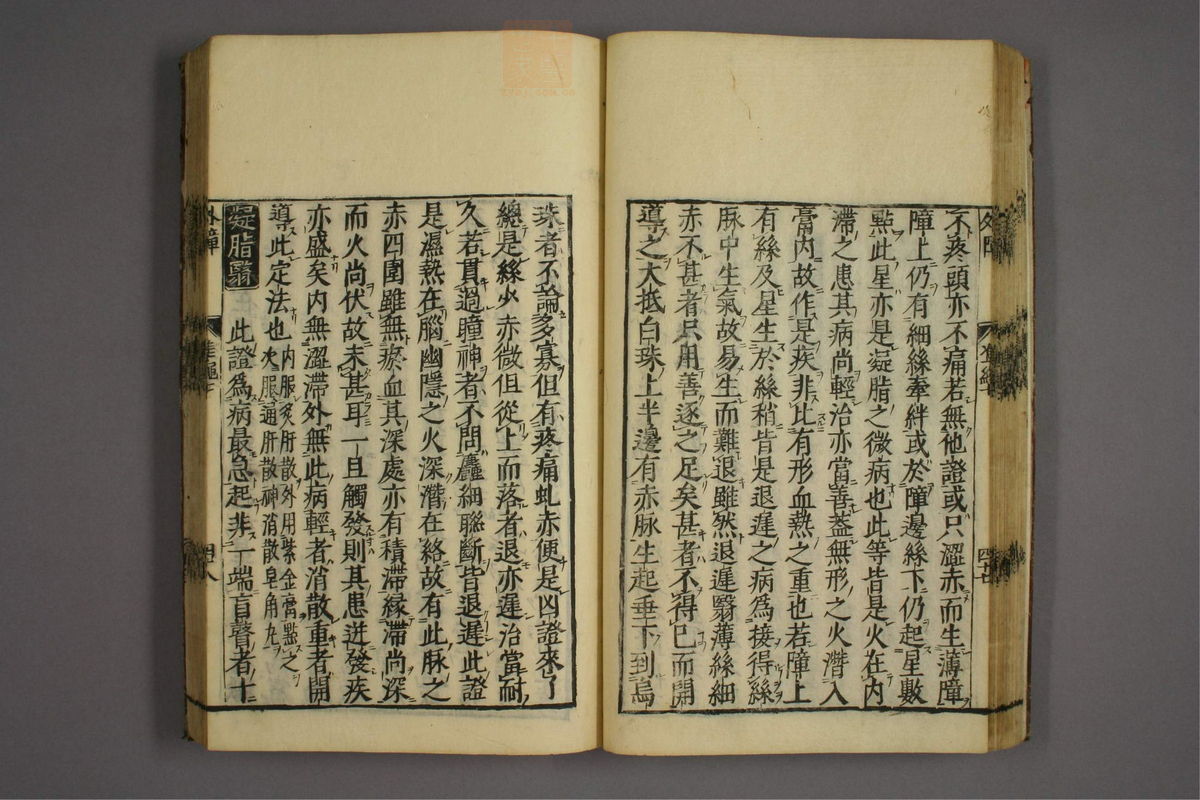 不疼頭亦不痛若無他證或只澀赤而生薄障
障上仍有細絲牽絆或於障邊絲下仍起星數
點此星亦是凝脂之微病也此等皆是火在內
滯之患其病尚輕治亦當善蓋無形之火潛入
膏內故作是疾非比有形血熱之重也若障上
有絲及星生於絲稍皆是退遲之病爲接得絲
脉中生氣故易生而難退雖然退遲翳薄絲細
赤不甚者只用善逐之足矣甚者不得已而開
導之大抵白珠上半邊有赤脉生起垂下到烏
珠者不論多寡但有疼痛虬赤便是凶證來了
總是絲少赤微但從上而落者退亦遲治當耐
久若貫過瞳神者不問麤細聯斷皆退遲此證
是濕熱在腦幽隱之火深潛在絡故有此脉之
赤四圍雖無瘀血其深處亦有積滯緣滯尚深
而火尚伏故未甚耳一旦觸發則其患迸發疾
亦盛矣內無澀滯外無此病輕者消散重者開
導此定法也內服炙肝散外用紫金膏點之
次服通肝散神消散皂角丸
凝脂翳
此證爲病最急起非一端盲瞽者十
外障